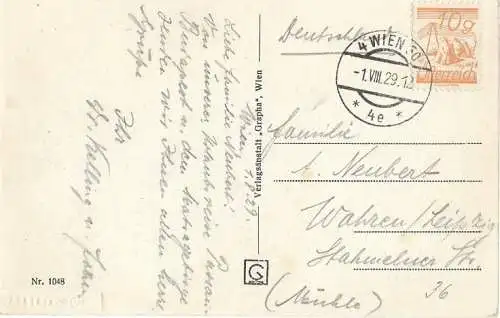 Wien, 1.8.29.
Liebe Familie Neubert!
Von unserer Urlaubsreise Wien
Budapest u. dem Matragebirge
senden wir Ihnen allen herzl.
Grüße
Ihr
u. Frau
Nr. 1048
Verlagsanstalt „Grapha", Wien
Deutschland
4 WIEN 50
-1.VIII.29.12
* 4e *
10g
Österreich
Familie
A. Neubert
Wahren/Leipzig
Stahmelner Str.
36
(Mühle)